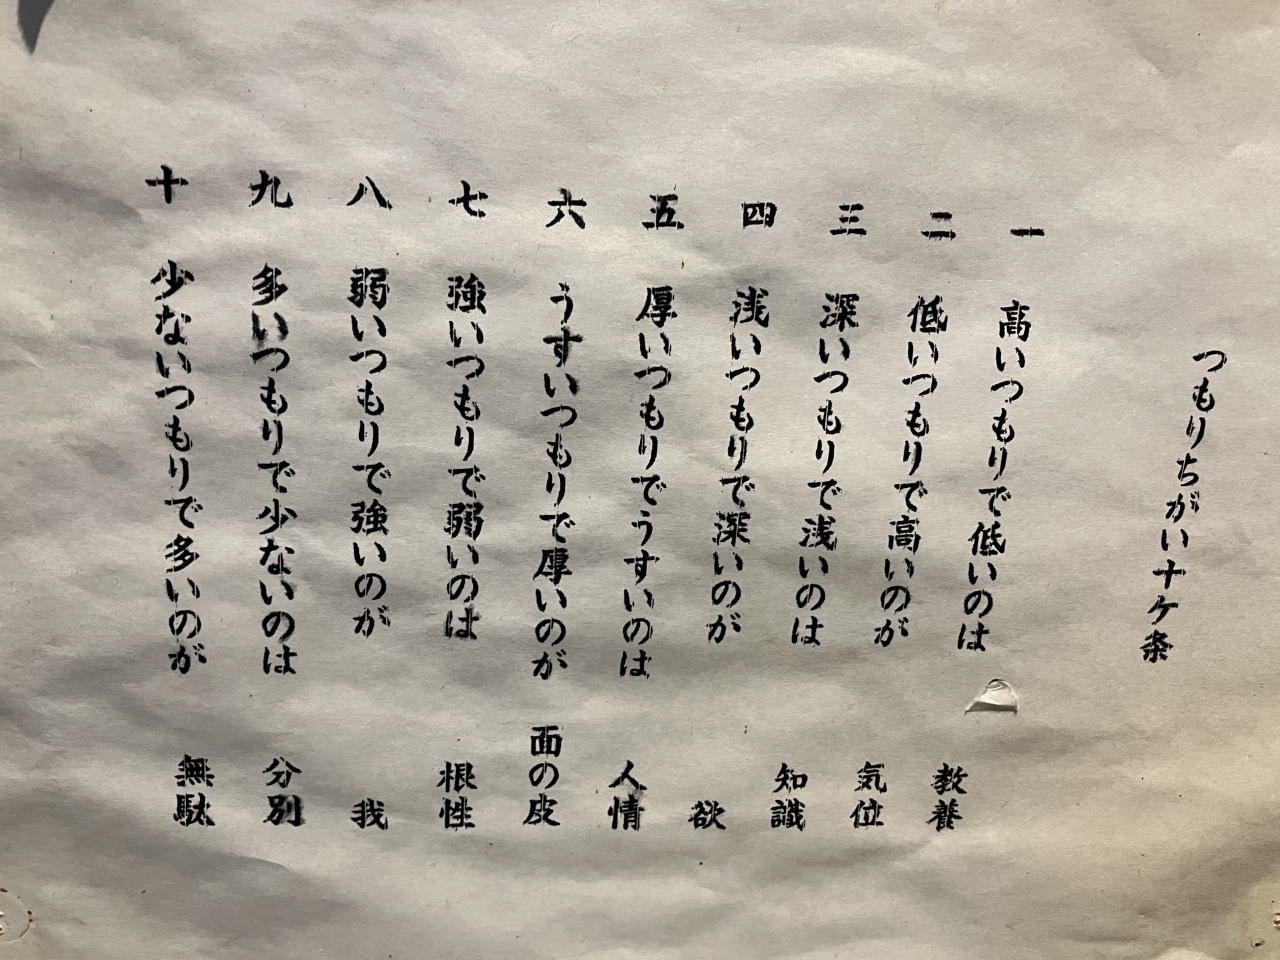 つもりちがい十ケ条
一 高いつもりで低いのは 教養
二 低いつもりで高いのが 気位
三 深いつもりで浅いのは 知識
四 浅いつもりで深いのが 欲
五 厚いつもりでうすいのは 人情
六 うすいつもりで厚いのが 面の皮
七 強いつもりで弱いのは 根性
八 弱いつもりで強いのが 我
九 多いつもりで少ないのは 分別
十 少ないつもりで多いのが 無駄